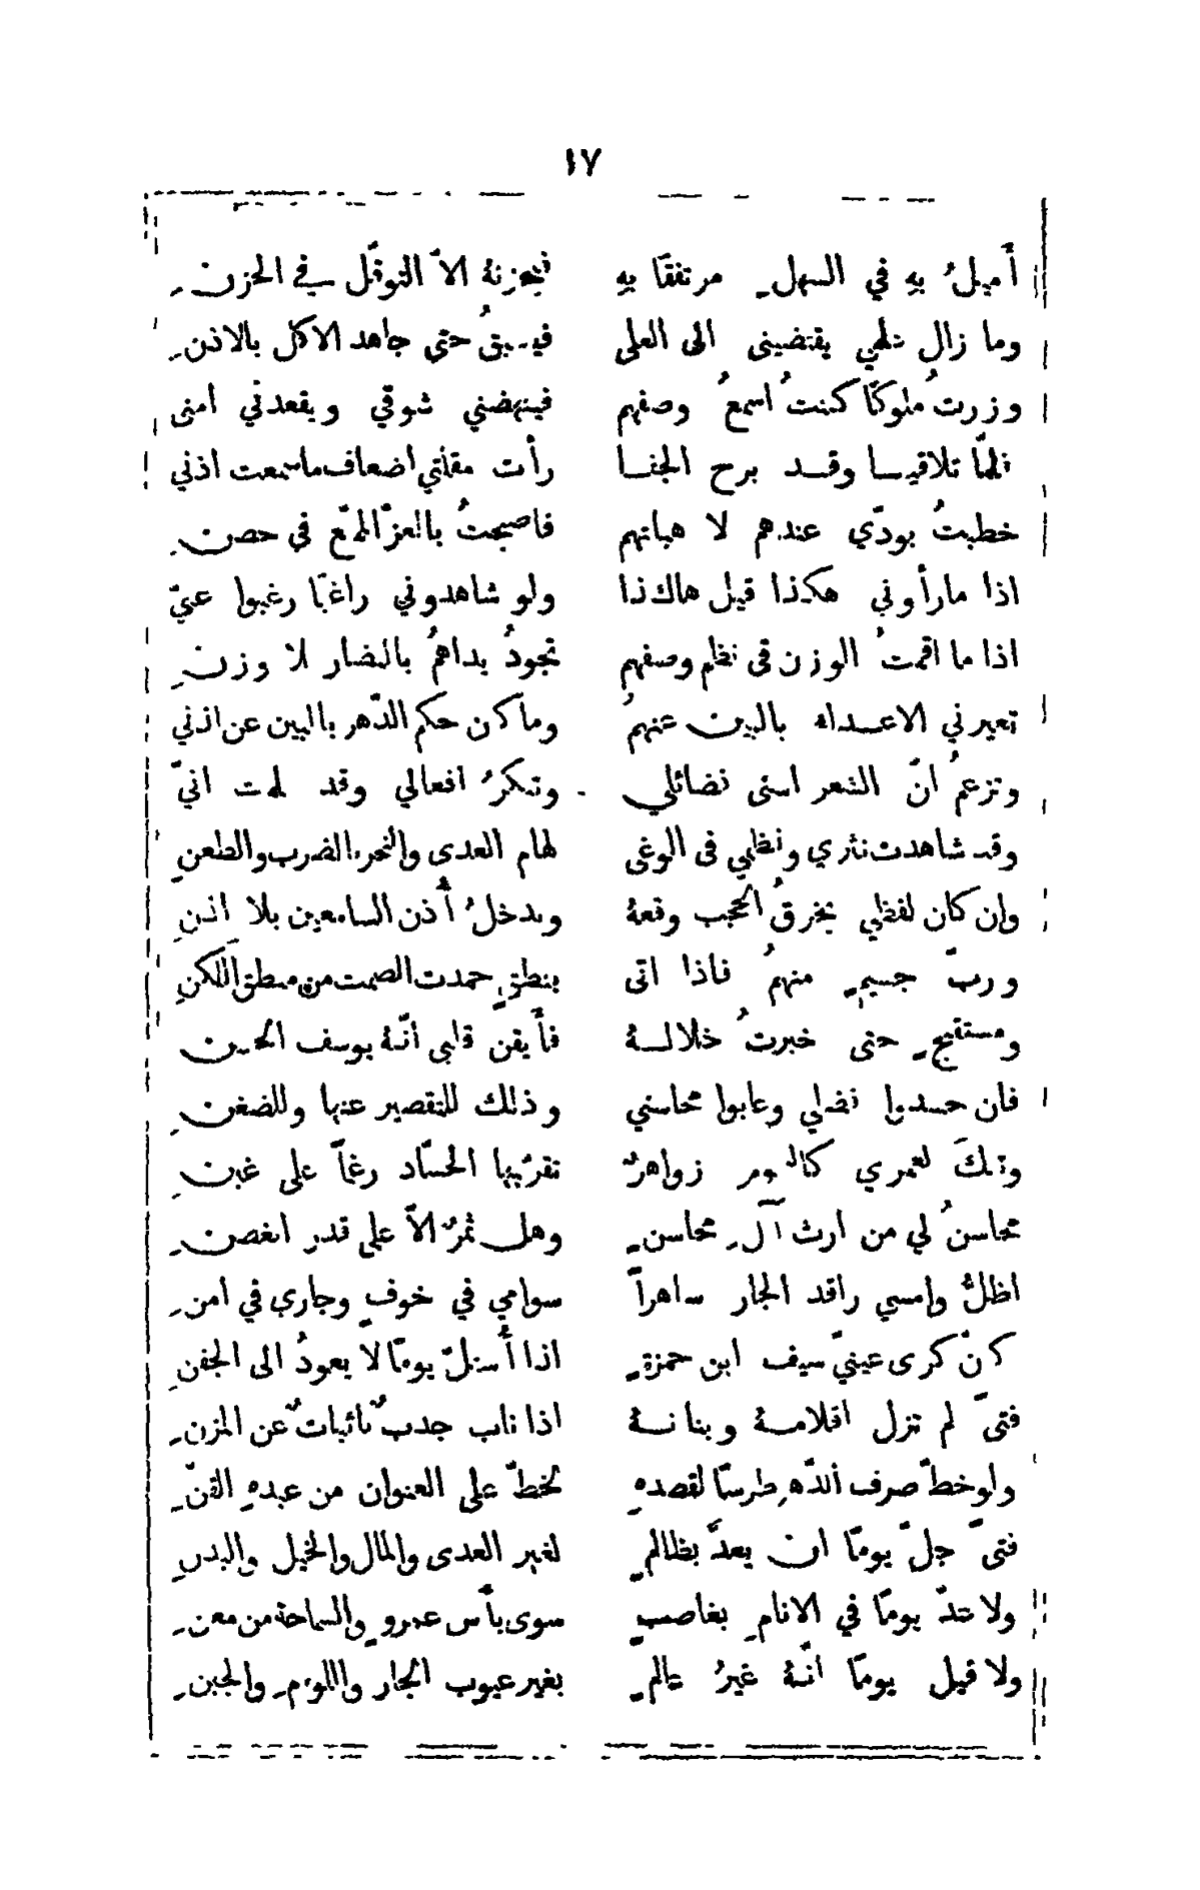 ١٧
أميلُ بهِ في السهلِ مرتفقًا بهِ فيحزنهُ الاّ التوقّل في الحزنِ
وما زال علمي يقتضيني الى العلى فيسبقُ حتى جاهد الاكل بالاذنِ
وزرتُ ملوكًا كنتُ اسمعُ وصفهم فينهضني شوقي ويقعدني امنى
فلمّا تلاقينا وقد برح الخفا رأت مقلتي اضعاف ما سمعت اذني
خطبتُ بودّي عندهم لا هباتهم فاصبحتُ بالعزّ الممنّع في حصنِ
اذا ما رأوني هكذا قيل هاكذا ولو شاهدوني راغبًا رغبوا عنيّ
اذا ما اقمتُ الوزن في نظم وصفهم تجودُ يداهمُ بالنضار لا وزنِ
تعيرني الاعداء بالبين عنهمُ وما كان حكم الدّهر بالبين عن اذني
وتزعمُ انّ الشعر اسنى فضائلي وتنكرُ افعالي وقد علمت انيّ
وقد شاهدت نثري ونظمي في الوغى لهام العدى والنحر الضرب والطعنِ
وان كان لفظي يخرقُ الحجب وقعهُ ويدخلُ أُذن السامعين بلا اذنِ
وربّ جسيمٍ منهمُ فاذا اتى بنطقٍ حمدت الصمت من منطق اللكنِ
ومستقبحٍ حتى خبرتُ خلالهُ فأيقن قلبي انّهُ يوسف الحسنِ
فان حسدوا فضلي وعابوا محاسني وذلك للتقصير عنها وللضغنِ
وتلكَ لعمري كالنجوم زواهرٌ تقرّ بها الحسّاد رغماً على غبنِ
محاسنُ لي من ارث آلِ محاسنِ وهل ثمرٌ الاّ على قدر الغصنِ
اظلُّ وامسي راقد الجار ساهراً سوامي في خوفٍ وجاري في امنِ
كأن كرى عينيّ سيف ابن حمزةٍ اذا أُستلّ يومًا لا يعودُ الى الجفنِ
فتىً لم تزل اقلامهُ وبنانهُ اذا ناب جدبٌ نائباتٌ عن المزنِ
ولو خطّ صرف الدّهر طرسًا لقصدهِ لخطّ على العنوان من عبدهِ القنّ
فتىً جلّ يومًا ان يعدّ بظالمٍ لغير العدى والمال والخيل والبدنِ
ولا عدّ يومًا في الانامِ بغاصبٍ سوى بأس عمروٍ والسماحة من معنِ
ولا قيل يومًا انّهُ غيرُ عالمٍ بغير عيوب الجار واللومِ والجبنِ